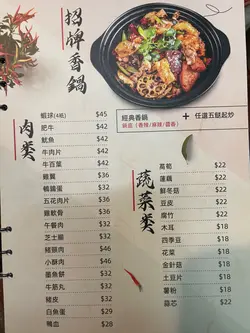 招牌香鍋
經典香鍋
鍋底(香辣/麻辣/醬香)
+ 任選五餸起炒
肉类
蝦球(4粒) $45
肥牛 $42
魷魚 $42
牛肉片 $42
牛百葉 $42
雞翼 $36
鵪鶉蛋 $32
五花肉片 $36
雞軟骨 $36
午餐肉 $32
芝士腸 $32
豬頸肉 $36
小酥肉 $36
墨魚餅 $32
牛筋丸 $32
豬皮 $32
白魚蛋 $29
鴨血 $28
蔬菜类
萵筍 $22
蓮藕 $22
鮮冬菇 $22
豆皮 $22
腐竹 $22
木耳 $18
四季豆 $18
花菜 $18
金針菇 $18
土豆片 $18
薯粉 $18
蒜芯 $22